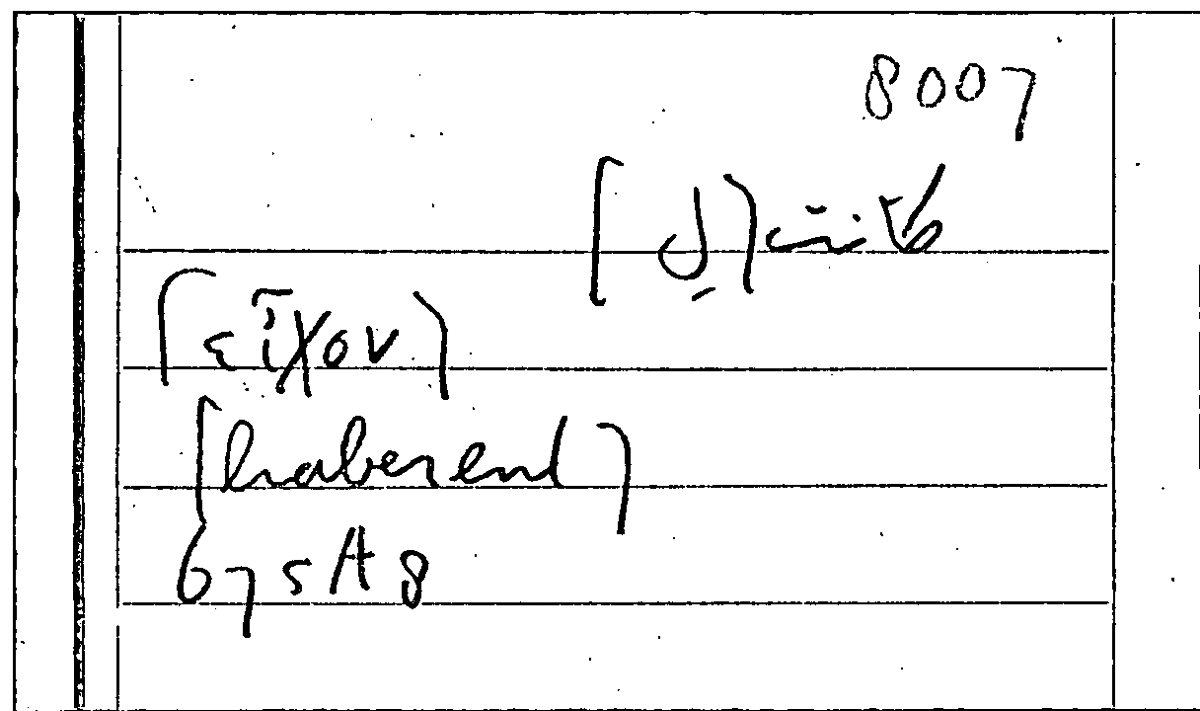 8007
[εἶχον]
[haberent]
675A8